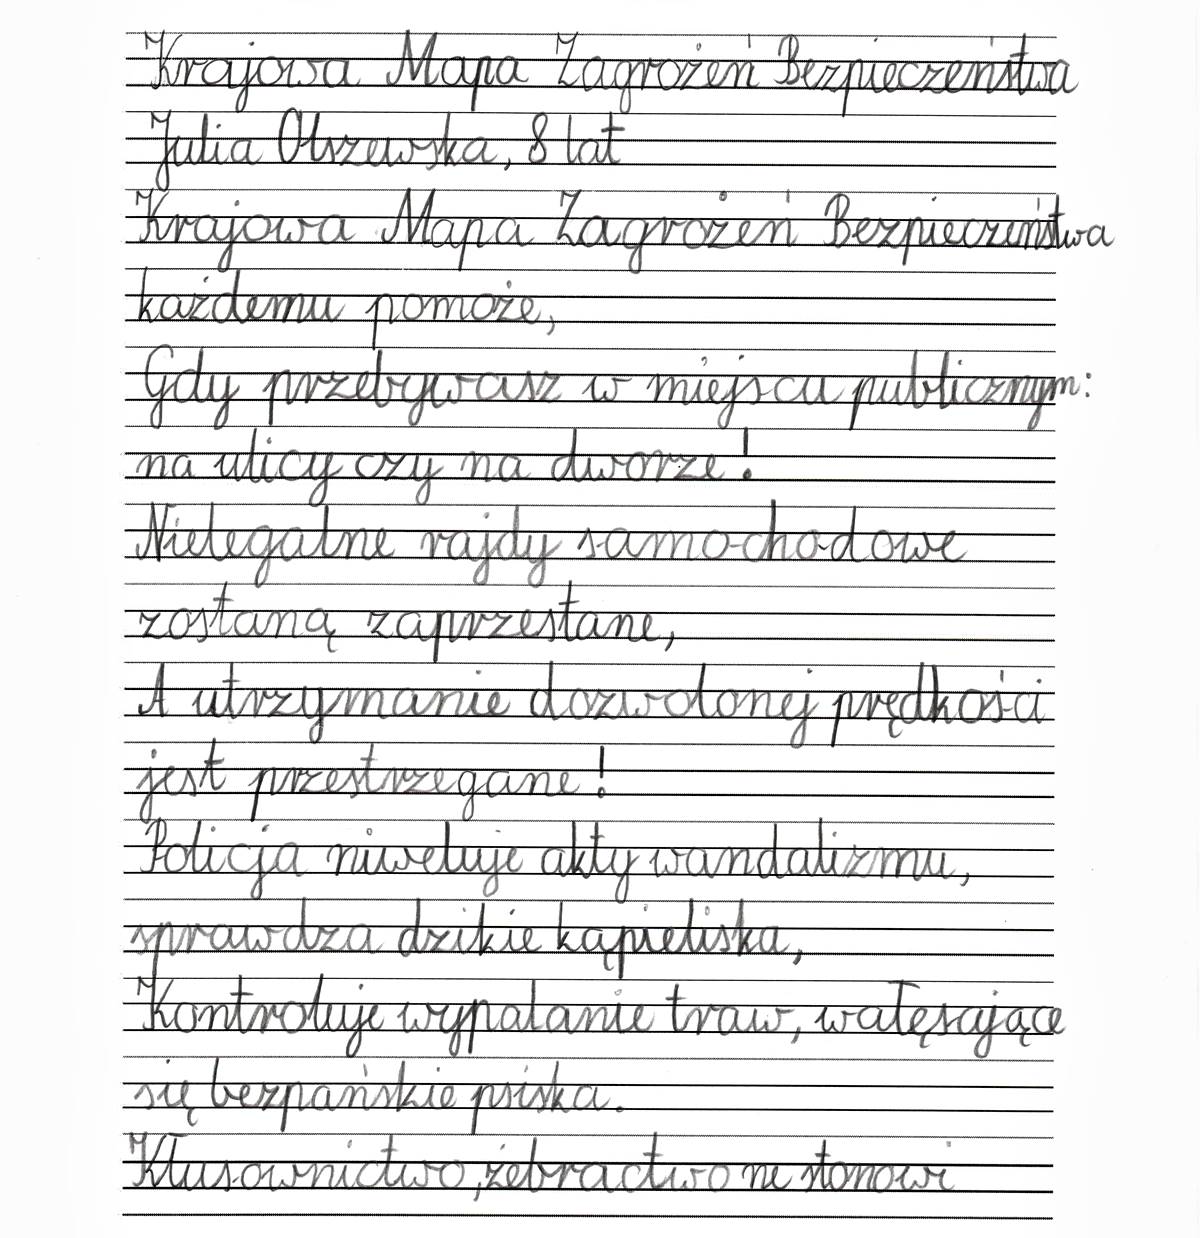 Krajowa Mapa Zagrożeń Bezpieczeństwa
Julia Olszewska, 8 lat
Krajowa Mapa Zagrożeń Bezpieczeństwa
każdemu pomoże,
Gdy przebywasz w miejscu publicznym:
na ulicy czy na dworze!
Nielegalne rajdy samochodowe
zostaną zaprzestane,
A utrzymanie dozwolonej prędkości
jest przestrzegane!
Policja niweluje akty wandalizmu,
sprawdza dzikie kąpieliska,
Kontroluje wypalanie traw, wałęsające
się bezpańskie psiska.
Kłusownictwo, żebractwo ne stonowi